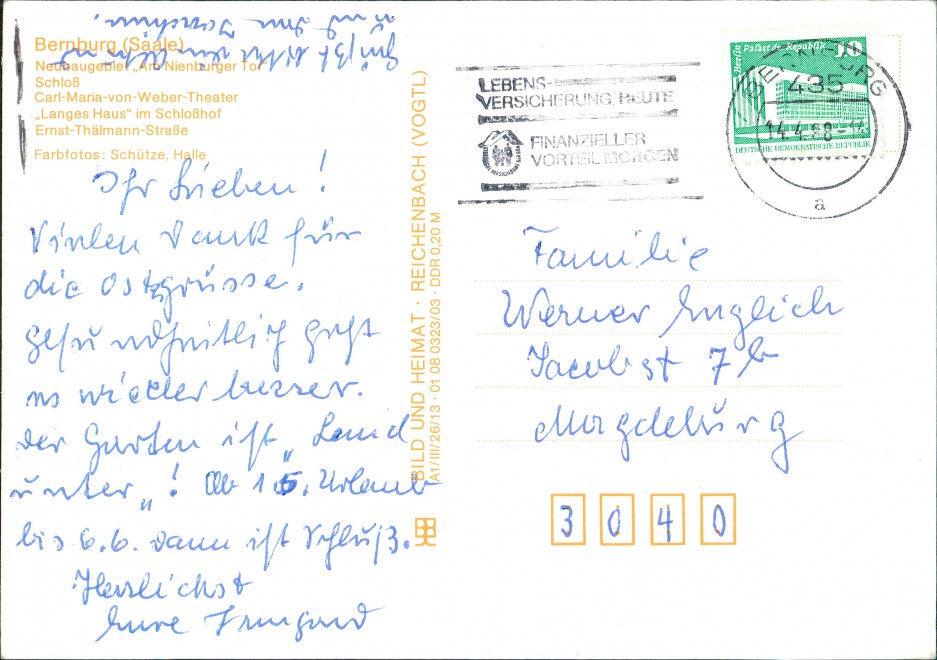 Bernburg (Saale)
Neubaugebiet „Am Nienburger Tor“
Schloß
Carl-Maria-von-Weber-Theater
„Langes Haus“ im Schloßhof
Ernst-Thälmann-Straße
Farbfotos: Schütze, Halle
Ihr Lieben!
Vielen Dank für
die Ostergrüsse.
Gesundheitlich geht
es wieder besser.
Der Garten ist „Land
unter„! Ab 15. Urlaub
bis 6.6. dann ist Schluß.
Herzlichst
Eure Irmgard
Grüßt bitte
und
BILD UND HEIMAT · REICHENBACH (VOGTL)
A1/III/26/13 · 01 08 0323/03 · DDR 0,20 M
LEBENS-
VERSICHERUNG HEUTE
FINANZIELLER
VORTEIL MORGEN
Berlin Palast der Republik 10
DEUTSCHE DEMOKRATISCHE REPUBLIK
BERNBURG
435
14.4.88
a
Familie
Werner Englich
Jacobst 7b
Magdeburg
3 0 4 0